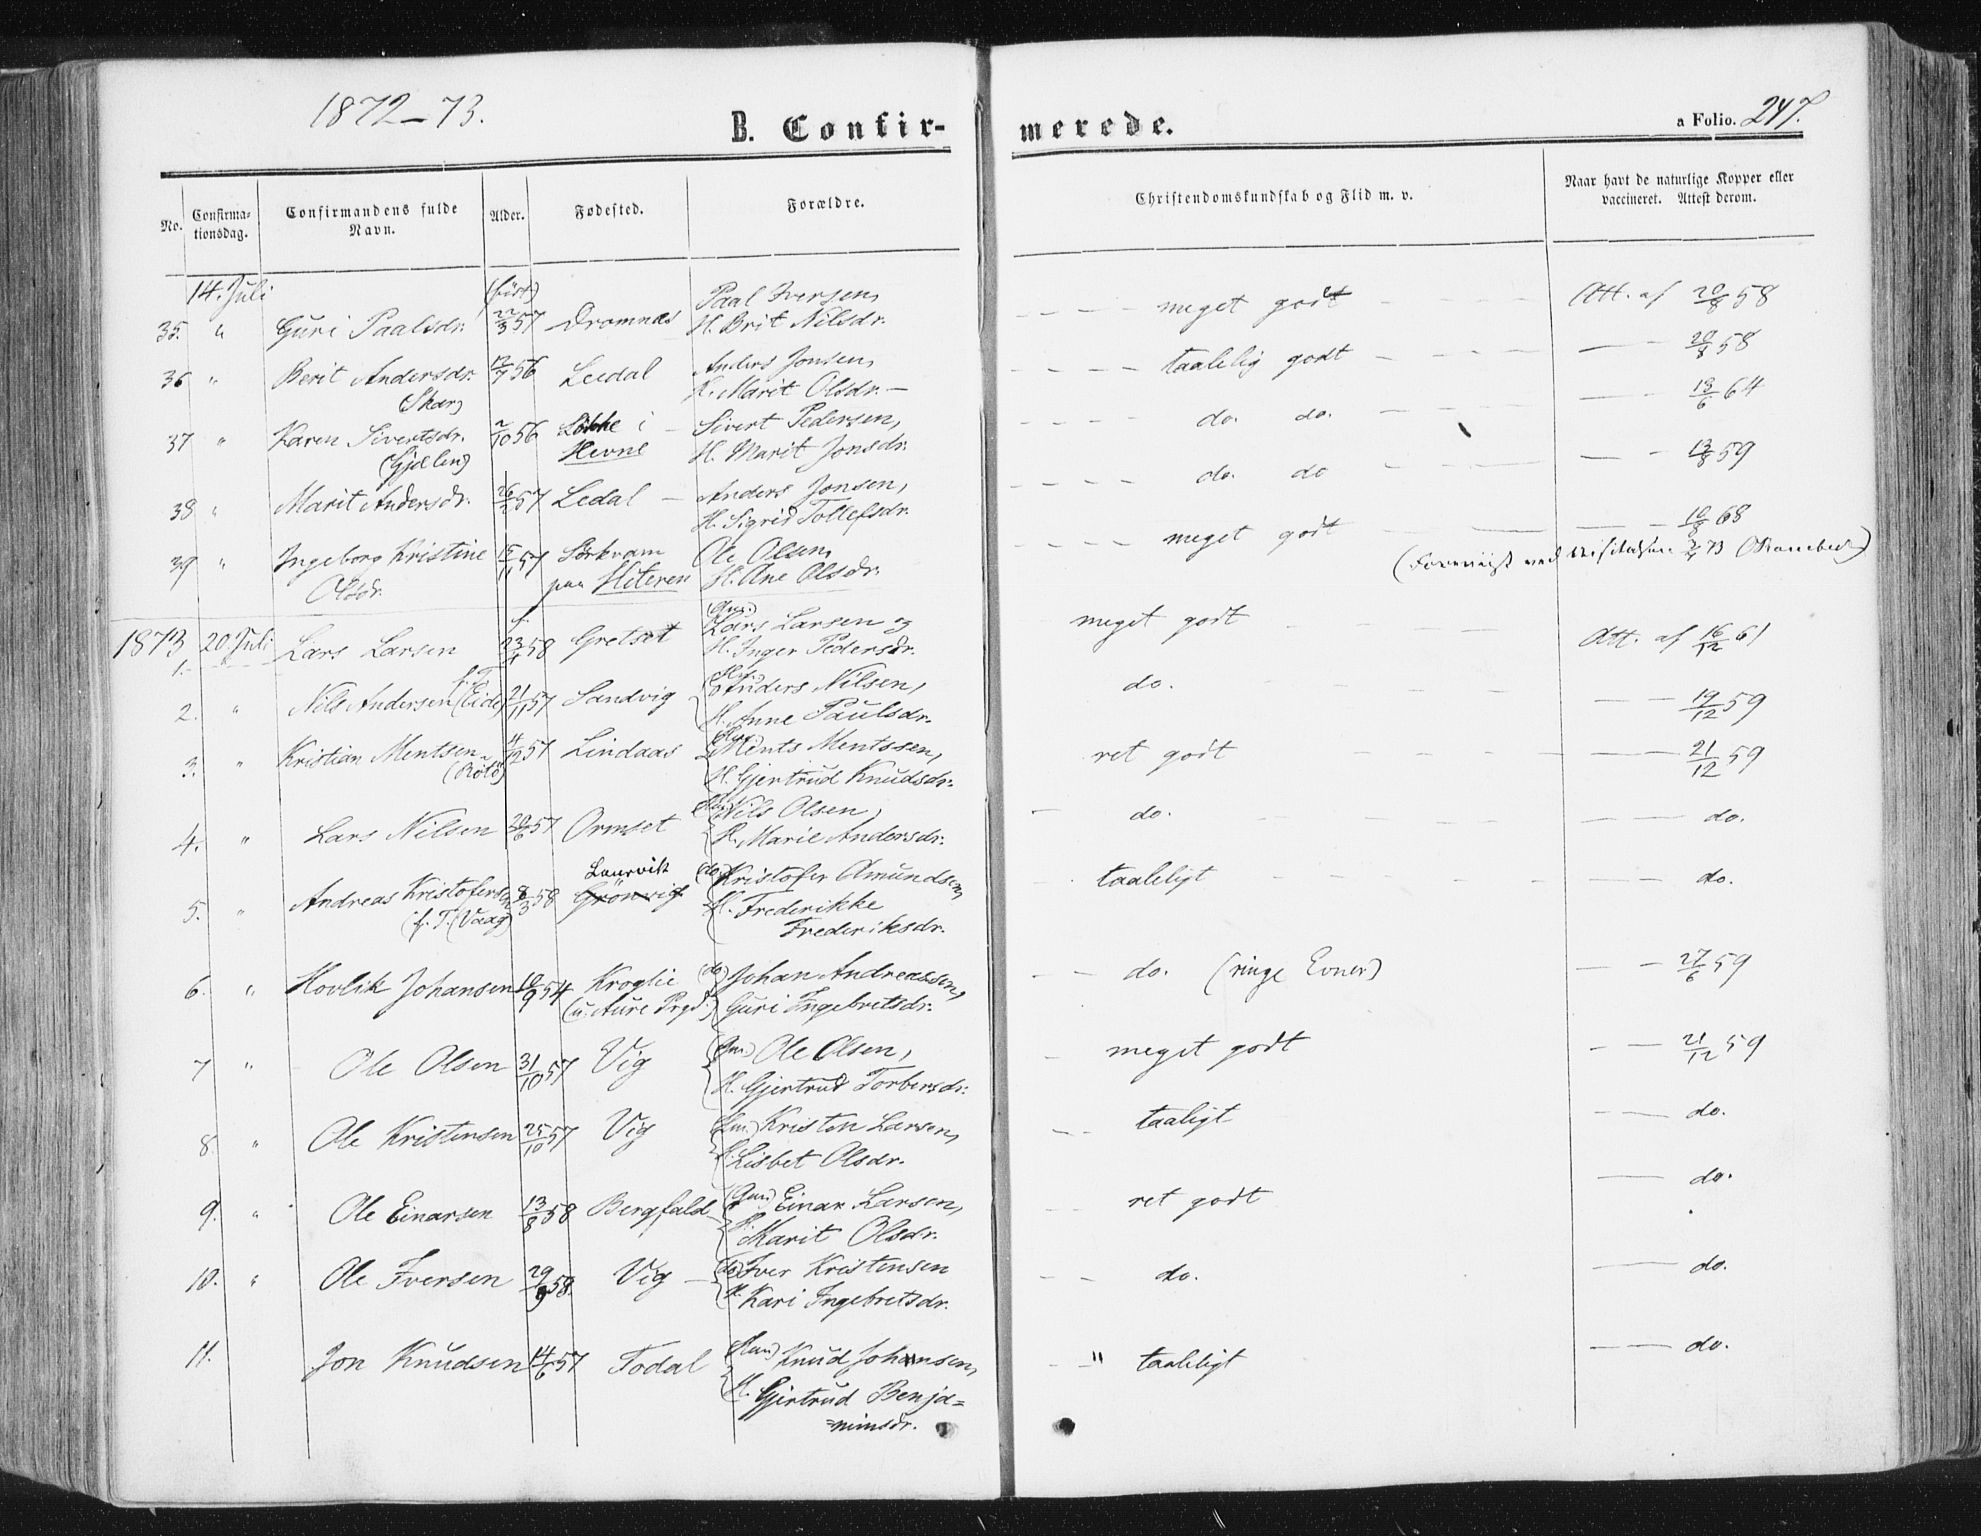 1872-73.
B. Confir-
merede.
a Folio. 247.
No.
Confirma-
tionsdag.
Confirmandens fulde
Navn.
Alder.
Fødested.
Forældre.
Christendomskundskab og Flid m. v.
Naar havt de naturlige Kopper eller
vaccineret. Attest derom.
14. Juli (født) Paal Iversen,
35. " Guri Paalsdr. 22/3 57 Dromnæs H. Brit Nilsdr. meget godt Att. af 20/8 58
36 " Berit Andersdr. 12/7 56 Ledal Anders Jonsen, taalelig godt 20/8 58
(Skar) K. Marit Olsdr.
37 " Karen Sivertsdr. 2/10 56 Løkke i Sivert Pedersen, do. do. 18/6 64
(Gjelen) Hevne H. Marit Jonsdr.
38 " Marit Andersdr. 26/2 57 Ledal Anders Jonsen, do. do 13/8 59
H. Sigrid Tollefsdr.
39 " Ingeborg Kristine 15/11 57 Sørkvam Ole Olsen, meget godt 10/8 68
Olsdr. paa Hiteren H. Ane Olsdr.
1873 20. Juli f. Lars Larsen og
1. Lars Larsen 23/4 58 Gretset H. Inger Pedersdr. meget godt Att. af 16/12 61
2. " Nils Andersen (Eide) 21/11 57 Sandvig Anders Nilsen, do. 19/12 59
f. T. H. Anne Paulsdr.
3. " Kristian Mentsen 4/12 57 Lindaas Ments Mentssen, ret godt 21/12 59
(Rötö) H. Gjertrud Knudsdr.
4. " Lars Nilsen 20/6 57 Ormset Nils Olsen, do. do.
H. Marie Andersdr.
Laurvik
5. " Andreas Kristofersen 8/3 58 Grönvig (do) Kristofer Amundsen, taaleligt do.
(f. T. (Vaag) H. Frederikke
Frederiksdr.
6. " Hovlik Johansen 10/9 54 Kroglie (do) Johan Andreassen, do. (ringe Evner) 27/6 59
(u. Aure Prgd.) Guri Ingebretsdr.
7 " Ole Olsen 31/10 57 Vig (Gm.) Ole Olsen, meget godt 21/12 59
H. Gjertrud Torbersdr.
8. " Ole Kristensen 25/10 57 Vig Kristen Larsen, taaligt do.
H. Lisbet Olsdr.
9. " Ole Einarsen 13/8 58 Bergfald (Gm.) Einar Larsen, ret godt do.
H. Marit Olsdr.
10. " Ole Iversen 29/9 58. Vig (do) Iver Kristensen do. do.
H. Kari Ingebretsdr.
11. Jon Knudsen 14/6 57 Todal Knud Johansen, " taaleligt do.
H. Gjertrud Benja=
=minsdr.